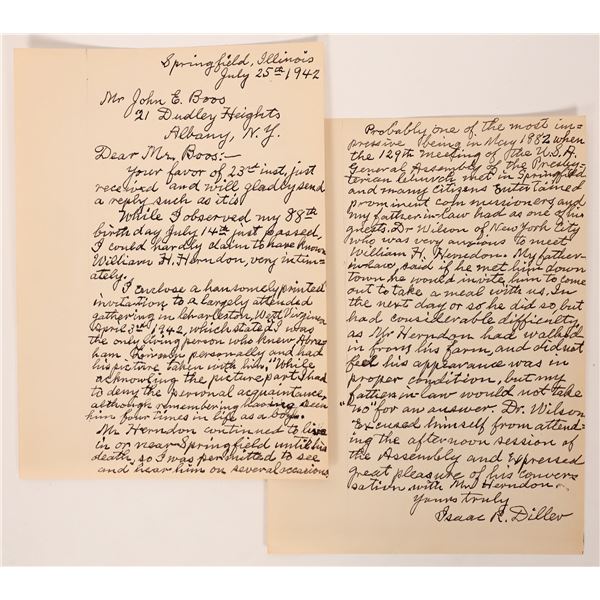 Springfield, Illinois
July 25th 1942
Mr John E. Boos
21 Dudley Heights
Albany, N.Y.
Dear Mr. Boos:-
Your favor of 23rd inst, just
received and will gladly send
a reply such as it is
While I observed my 88th
birthday July 14th just passed,
I could hardly claim to have known
William H. Herndon, very intim-
ately.
I enclose a hansomely printed
invitation to a largely attended
gathering in Charleston, West Virginia
April 3rd 1942, which stated "I was
the only living person who knew Abra-
ham Lincoln personally and had
his picture taken with him." While
acknowling the picture part, I had
to deny the personal acquaintance,
although remembering having seen
him four times in life as a boy.
Mr Herndon continued to live
in or near Springfield until his
death, so I was permitted to see
and hear him on several occasions
Probably one of the most im-
pressive being in May 1882 when
the 129th meeting of the U.S.A.
General Assembly of the Presby-
terian Church met in Springfield
and many citizens entertained
prominent commissioners and
my father-in-law had as one of his
guests. Dr Wilson of New York City
who was very anxious to meet
William H. Herndon. My father-
in-law, said if he met him down
town he would invite him to come
out to take a meal with us. In
the next day or so he did so, but
had considerable difficulty,
as Mr Herndon had walked
in from his farm, and did not
feel his appearance was in
proper condition, but my
father-in-law would not take
"no" for an answer. Dr. Wilson
excused himself from attend-
ing the afternoon session of
the Assembly and expressed
great pleasure of his conver-
sation with Mr Herndon.
Yours truly
Isaac R. Diller